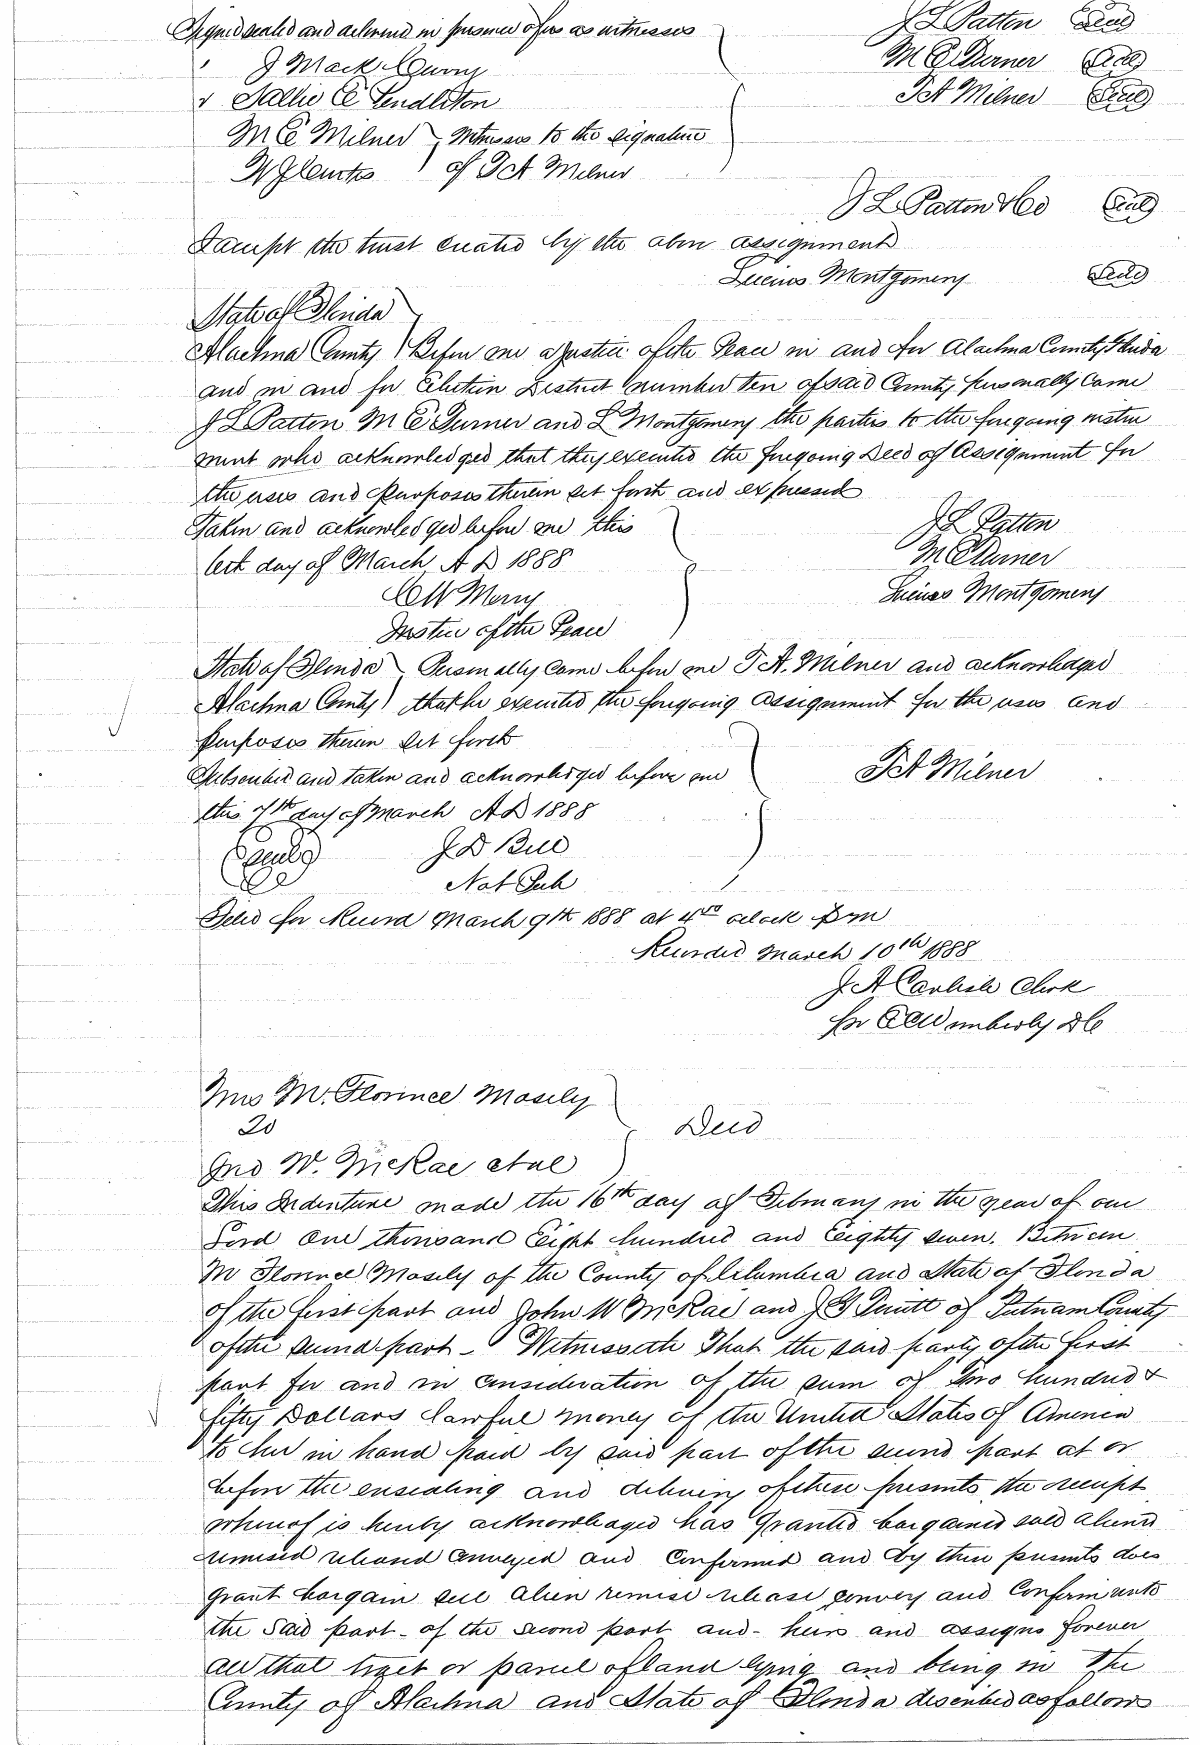 Signed sealed and delivered in presence of us as witnesses J L Patton (Seal)
" J Mack Curry M E Turner (Seal)
" Sallie E Pendleton T A Milner (Seal)
M E Milner Witnesses to the signature
W J Curtis of T A Milner
J L Patton & Co (Seal)
I accept the trust created by the abov assignment
Lucius Montgomery (Seal)
State of Florida
Alachua County Before me a Justice of the Peace in and for Alachua County Florida
and in and for Election District number ten of said County personally came
J L Patton M E Turner and L Montgomery the parties to the foregoing instru
ment who acknowledged that they executed the foregoing Deed of Assignment for
the uses and purposes therein set forth and expressed
Taken and acknowledged before me this J L Patton
6th day of March A D 1888 M E Turner
C W Merry Lucius Montgomery
Justice of the Peace
State of Florida Personally came before me T. A. Milner and acknowledged
Alachua County that he executed the foregoing assignment for the uses and
purposes therein set forth
Subscribed and taken and acknowledged before me T A Milner
this 7th day of March A D 1888
(Seal) J D Bell
Not Pub
Filed for Record March 9th 1888 at 4 oclock P m
Recorded March 10th 1888
J A Carlisle Clerk
for Wimberly D C
Mrs M. Florince Mosely
To Deed
Jno W. McRae et al
This Indenture made the 16th day of February in the year of our
Lord One thousand Eight hundred and Eighty seven. Between
M Florince Mosely of the County of Columbia and State of Florida
of the first part and John W McRae and J G of Putnam County
of the second part - Witnesseth That the said party of the first
part for and in consideration of the sum of Two hundred &
fifty Dollars lawful money of the United States of America
to her in hand paid by said part of the second part at or
before the ensealing and delivery of these presents the receipt
whereof is hereby acknowledged has granted bargained sold aliend
remised released conveyed and confirmed and by these presents does
grant bargain sell alien remise release convey and confirm unto
the said part- of the second part and- heirs and assigns forever
all that tract or parcel of land lying and being in the
County of Alachua and State of Florida described as follows